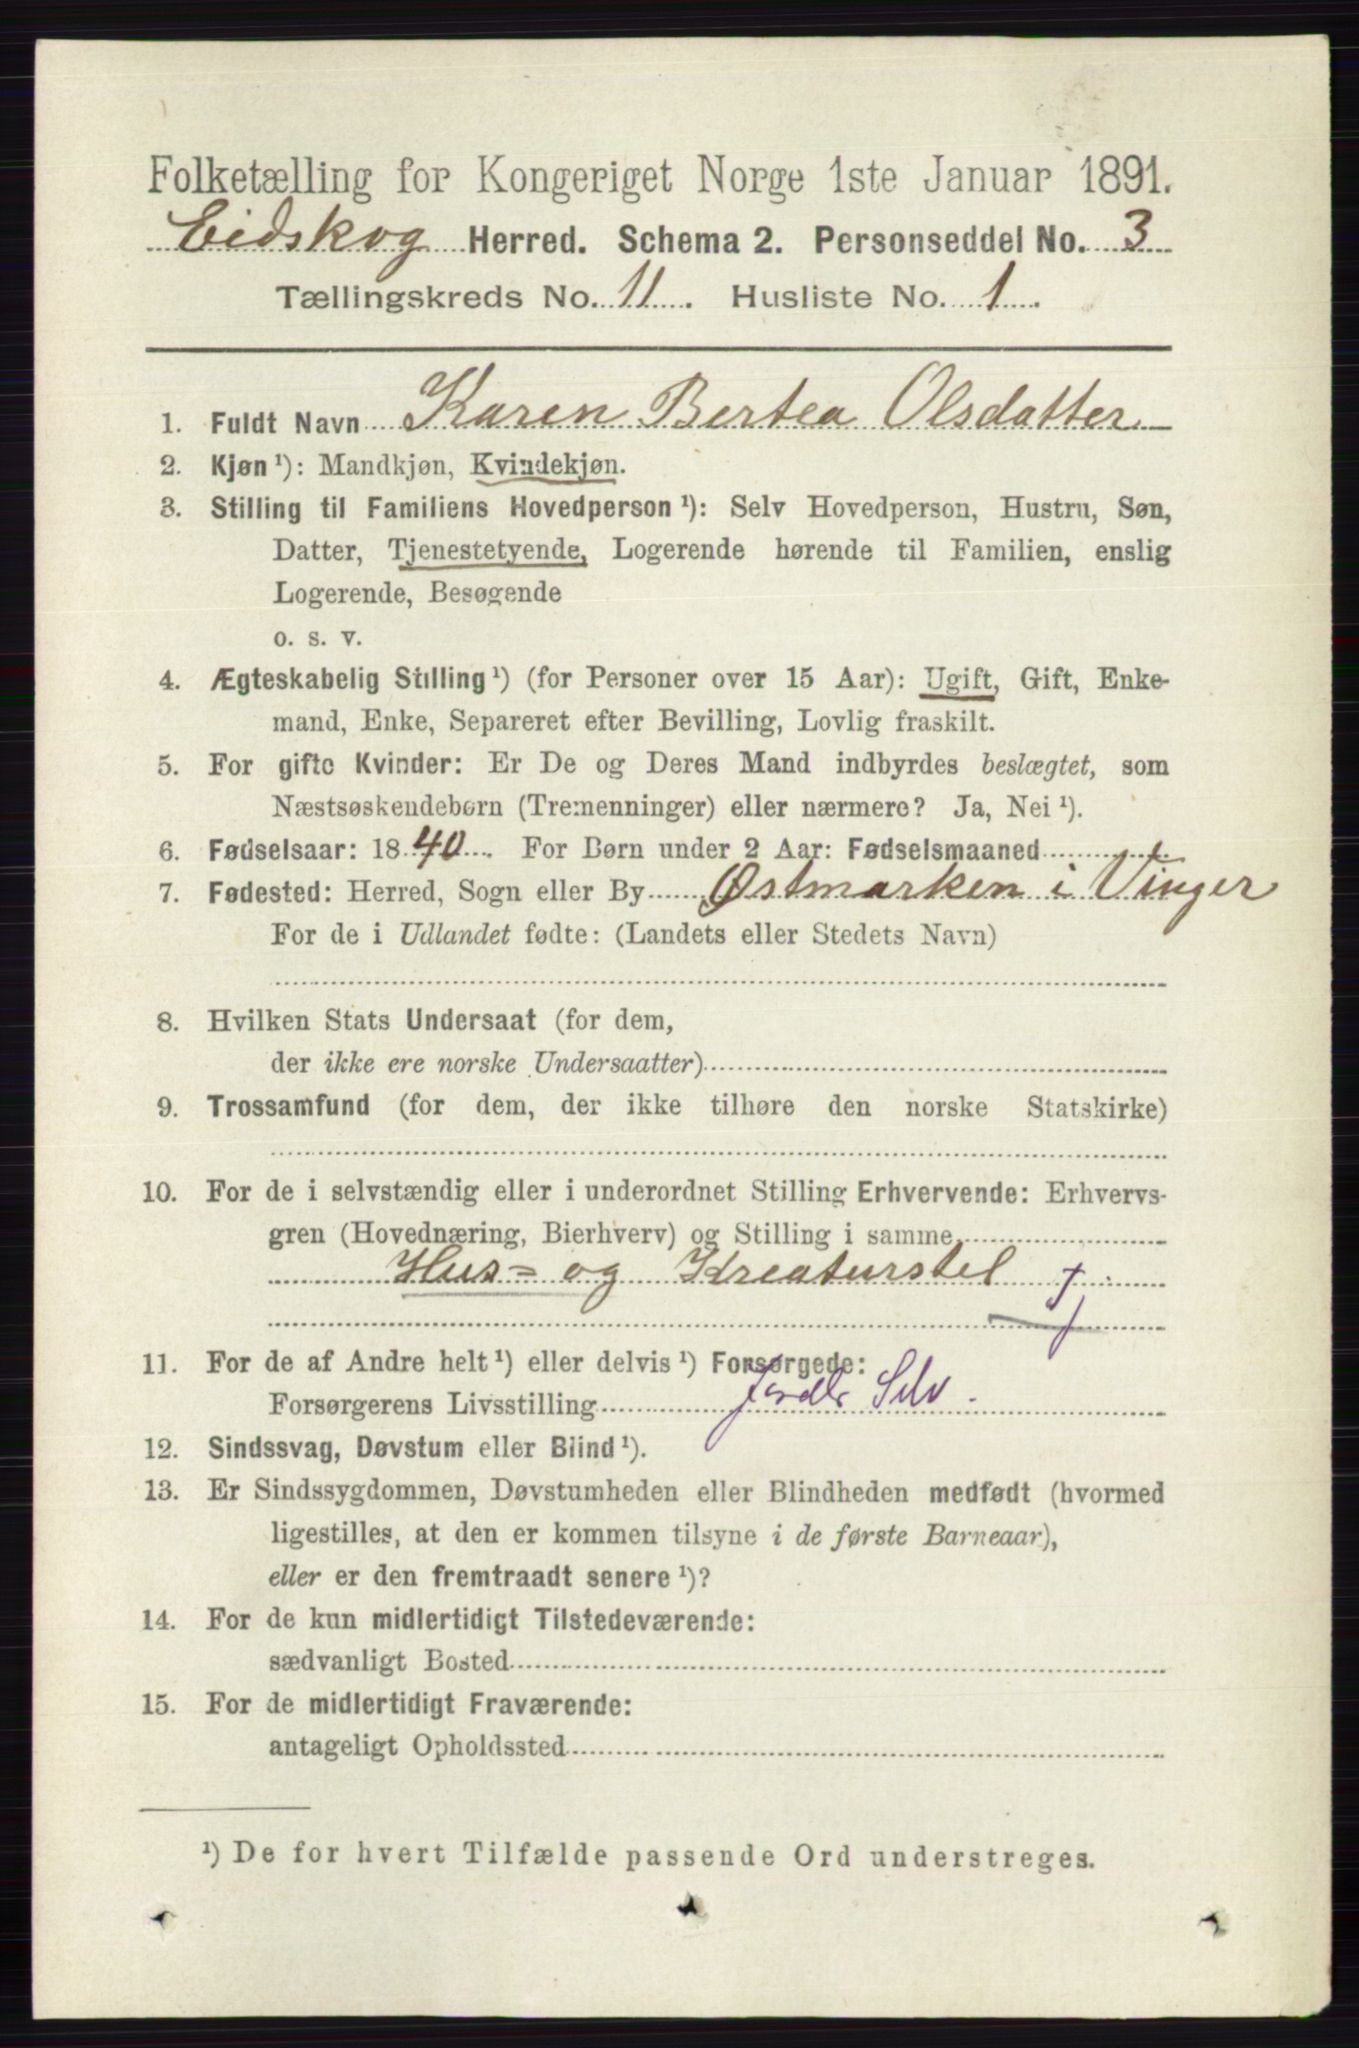 Folketælling for Kongeriget Norge 1ste Januar 1891.
Eidskog Herred. Schema 2. Personseddel No. 3
Tællingskreds No. 11. Husliste No. 1.
1. Fuldt Navn Karen Bertea Olsdatter
2. Kjøn ¹): Mandkjøn, Kvindekjøn.
3. Stilling til Familiens Hovedperson ¹): Selv Hovedperson, Hustru, Søn,
Datter, Tjenestetyende, Logerende hørende til Familien, enslig
Logerende, Besøgende
o. s. v.
4. Ægteskabelig Stilling ¹) (for Personer over 15 Aar): Ugift, Gift, Enke-
mand, Enke, Separeret efter Bevilling, Lovlig fraskilt.
5. For gifte Kvinder: Er De og Deres Mand indbyrdes beslægtet, som
Næstsøskendebørn (Tremenninger) eller nærmere? Ja, Nei ¹).
6. Fødselsaar: 1840. For Børn under 2 Aar: Fødselsmaaned
7. Fødested: Herred, Sogn eller By Østmarken i Vinger
For de i Udlandet fødte: (Landets eller Stedets Navn)
8. Hvilken Stats Undersaat (for dem,
der ikke ere norske Undersaatter)
9. Trossamfund (for dem, der ikke tilhøre den norske Statskirke)
10. For de i selvstændig eller i underordnet Stilling Erhvervende: Erhvervs-
gren (Hovednæring, Bierhverv) og Stilling i samme
Hus= og Kreaturstel
11. For de af Andre helt ¹) eller delvis ¹) Forsørgede:
Forsørgerens Livsstilling Selv.
12. Sindssvag, Døvstum eller Blind ¹).
13. Er Sindssygdommen, Døvstumheden eller Blindheden medfødt (hvormed
ligestilles, at den er kommen tilsyne i de første Barneaar),
eller er den fremtraadt senere ¹)?
14. For de kun midlertidigt Tilstedeværende:
sædvanligt Bosted
15. For de midlertidigt Fraværende:
antageligt Opholdssted
¹) De for hvert Tilfælde passende Ord understreges.